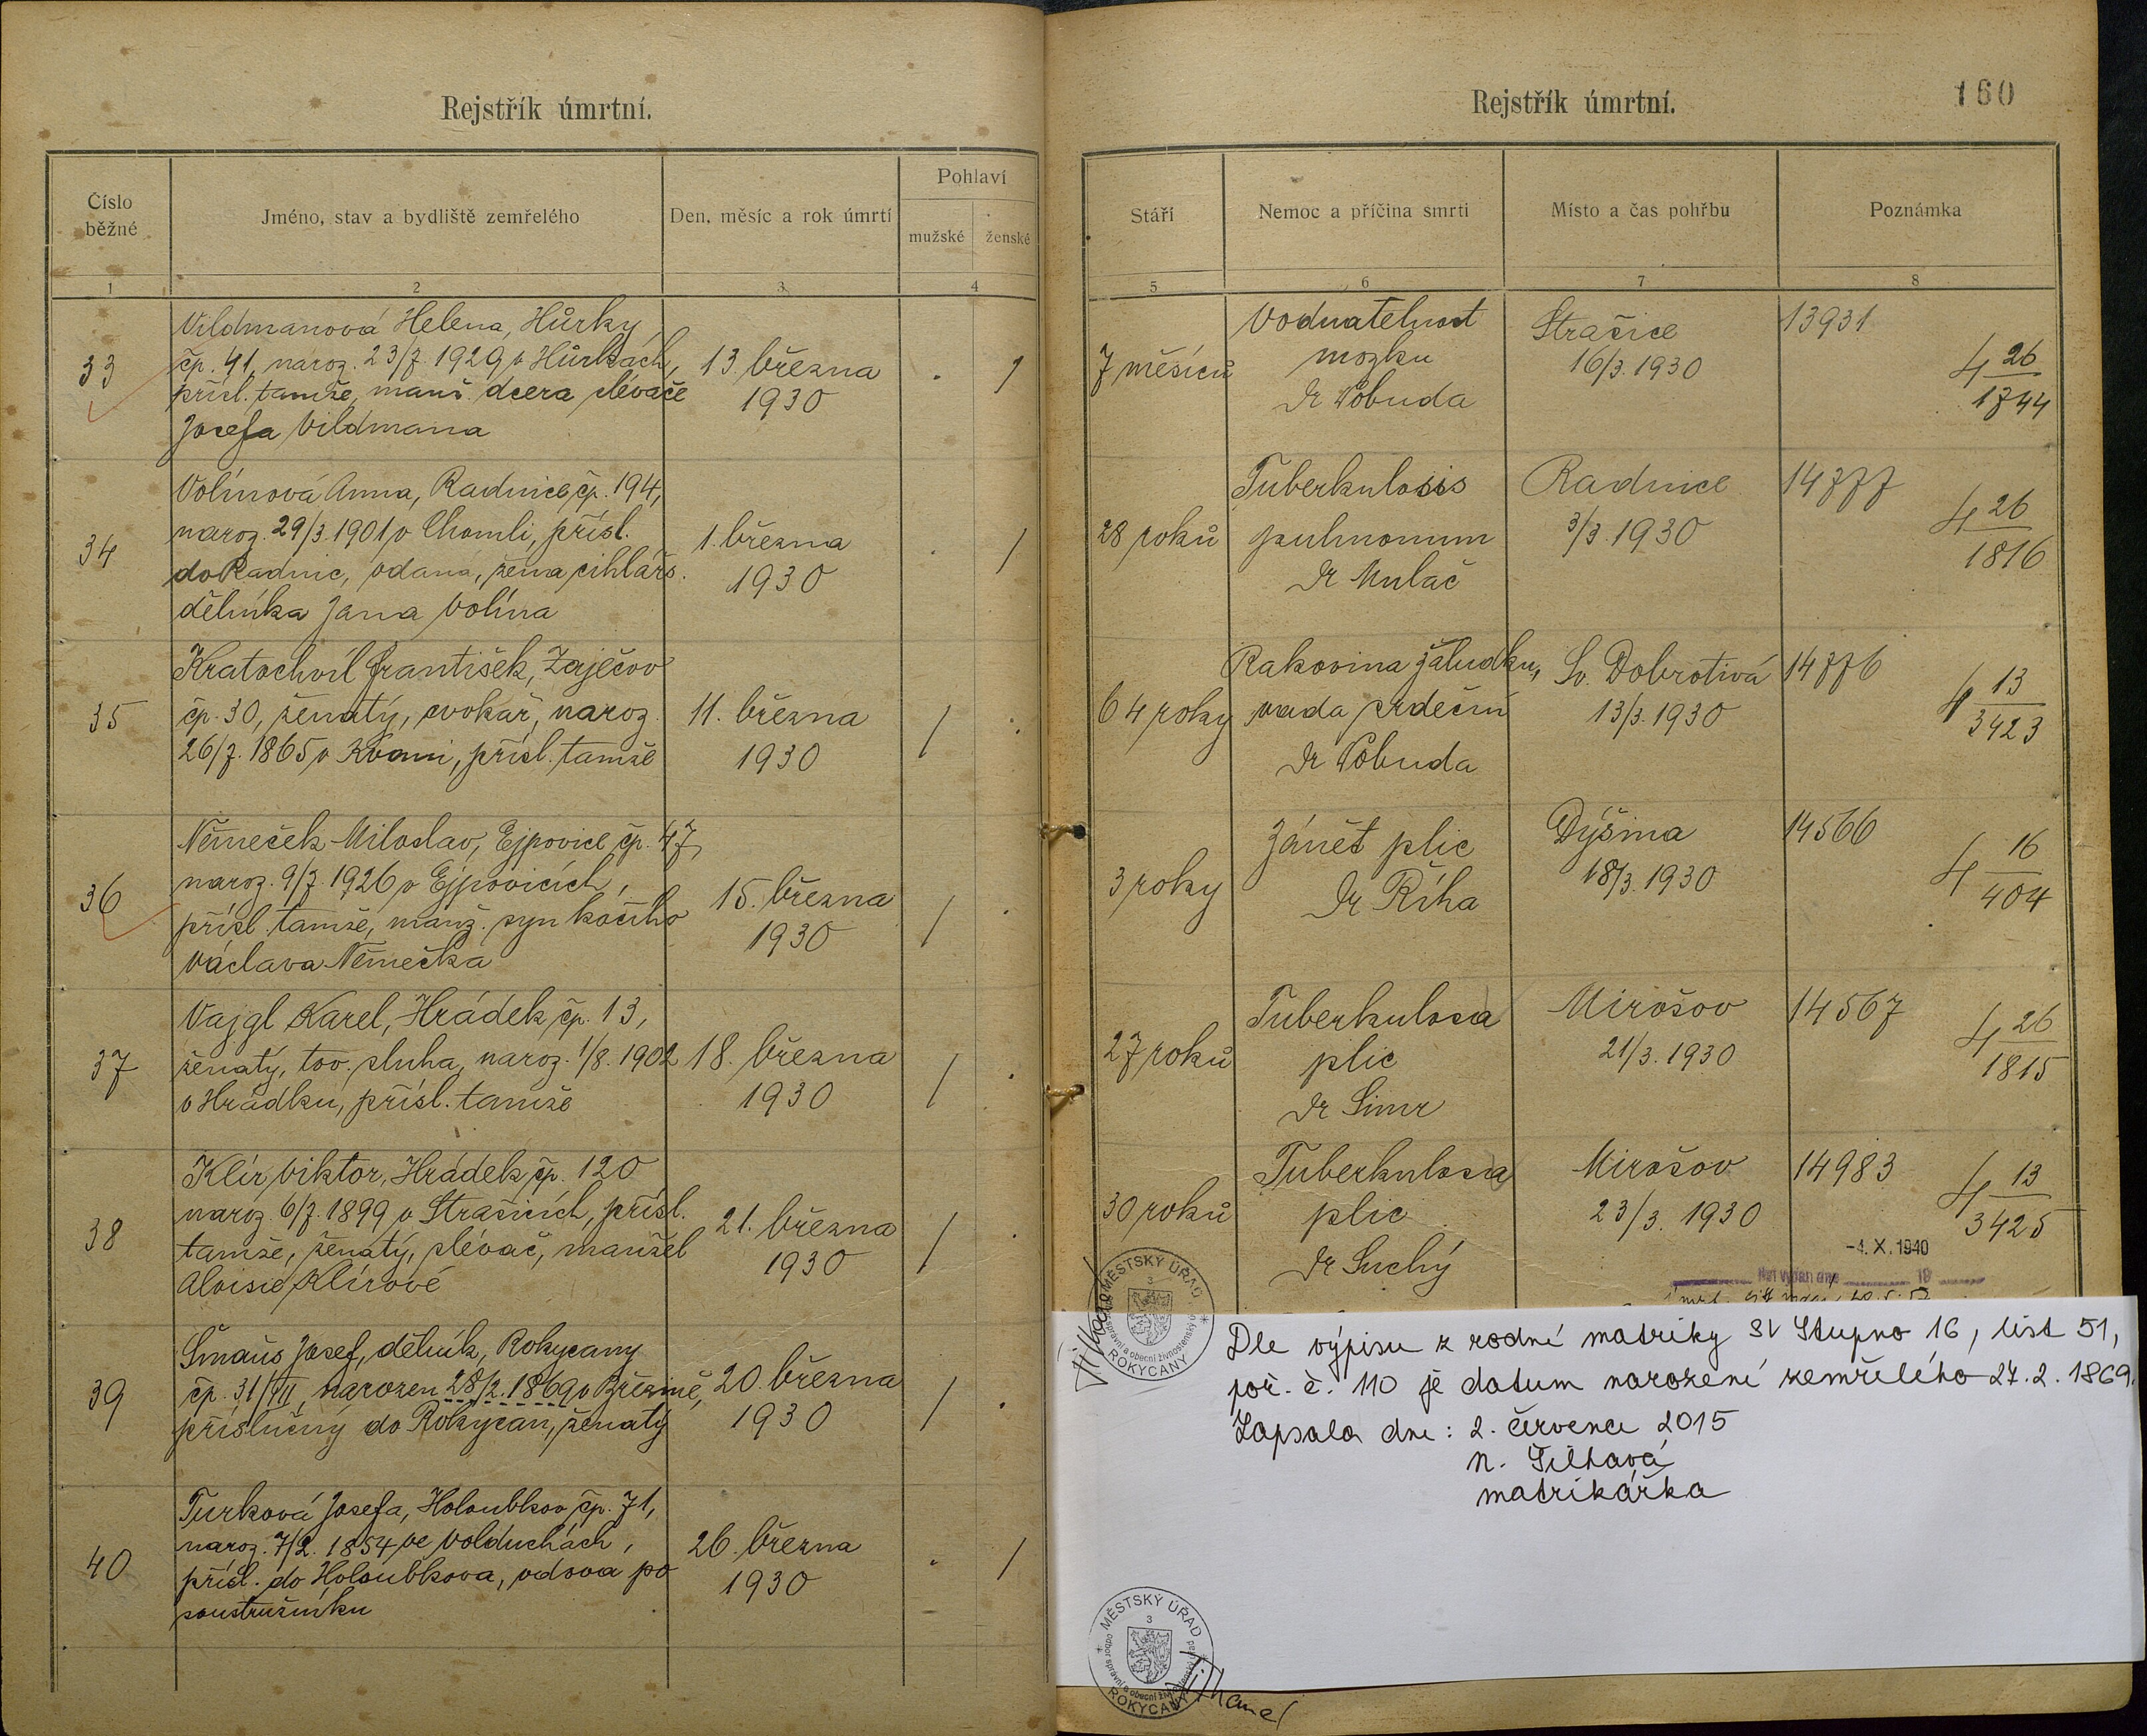 Rejstřík úmrtní.
Číslo běžné
Jméno, stav a bydliště zemřelého
Den, měsíc a rok úmrtí
Pohlaví
mužské
ženské
1
2
3
4
33
Vildmanová Helena, Hůrky
čp. 41, naroz. 23/7. 1929 v Hůrkách,
přísl. tamže, manž. dcera slévače
Josefa Vildmana
13. března
1930
34
Volínová Anna, Radnice čp. 194,
naroz. 29/3. 1901 v Chomli, přísl.
do Radnic, vdaná, žena cihlářs.
dělníka Jana Volína
1. března
1930
35
Kratochvíl František, Zaječov
čp. 30, ženatý, cvokař, naroz.
26/7. 1865 v Kvani, přísl. tamže
11. března
1930
36
Němeček Miloslav, Ejpovice čp. 47,
naroz. 9/7. 1926 v Ejpovicích,
přísl. tamže, manž. syn kočího
Václava Němečka
15. března
1930
37
Vajgl Karel, Hrádek čp. 13,
ženatý, tov. sluha, naroz. 1/8. 1902
v Hrádku, přísl. tamže
18. března
1930
38
Klír Viktor, Hrádek čp. 120
naroz. 6/7. 1899 v Strašicích, přísl.
tamže, ženatý, slévač, manžel
Aloisie Klírové
21. března
1930
39
Šmaus Josef, dělník, Rokycany
čp. 31/III, narozen 28/2. 1869 v Březině,
příslučný do Rokycan, ženatý
20. března
1930
40
Turková Josefa, Holoubkov čp. 71,
naroz. 7/2. 1854 ve Volduchách,
přísl. do Holoubkova, vdova po
soustružníku
26. března
1930
Rejstřík úmrtní.
160
Stáří
Nemoc a příčina smrti
Místo a čas pohřbu
Poznámka
5
6
7
8
7 měsíců
Vodnatelnost
mozku
Dr Vobuda
Strašice
16/3. 1930
13931
4 26
1744
28 roků
Tuberkulosis
pulmonum
Dr Mulač
Radnice
3/3. 1930
14777
4 26
1816
64 roky
Rakovina žaludku,
vada srdeční
Dr Vobuda
Sv. Dobrotivá
13/3. 1930
14776
4 13
3423
3 roky
Zánět plic
Dr Říha
Dýšina
18/3. 1930
14566
4 16
404
27 roků
Tuberkulosa
plic
Dr Simr
Mirošov
21/3. 1930
14567
4 26
1815
30 roků
Tuberkulosa
plic
Dr Suchý
Mirošov
23/3. 1930
14983
4 13
3425
-4. X. 1940
MĚSTSKÝ ÚŘAD
3
ROKYCANY
Dle výpisu z rodné matriky SV Stupno 16, list 51,
poř. č. 110 je datum narození zemřelého 27. 2. 1869.
Zapsala dne: 2. července 2015
N. Šilhavá
matrikářka
MĚSTSKÝ ÚŘAD
3
odbor správní a obecní živnostenský úřad
ROKYCANY